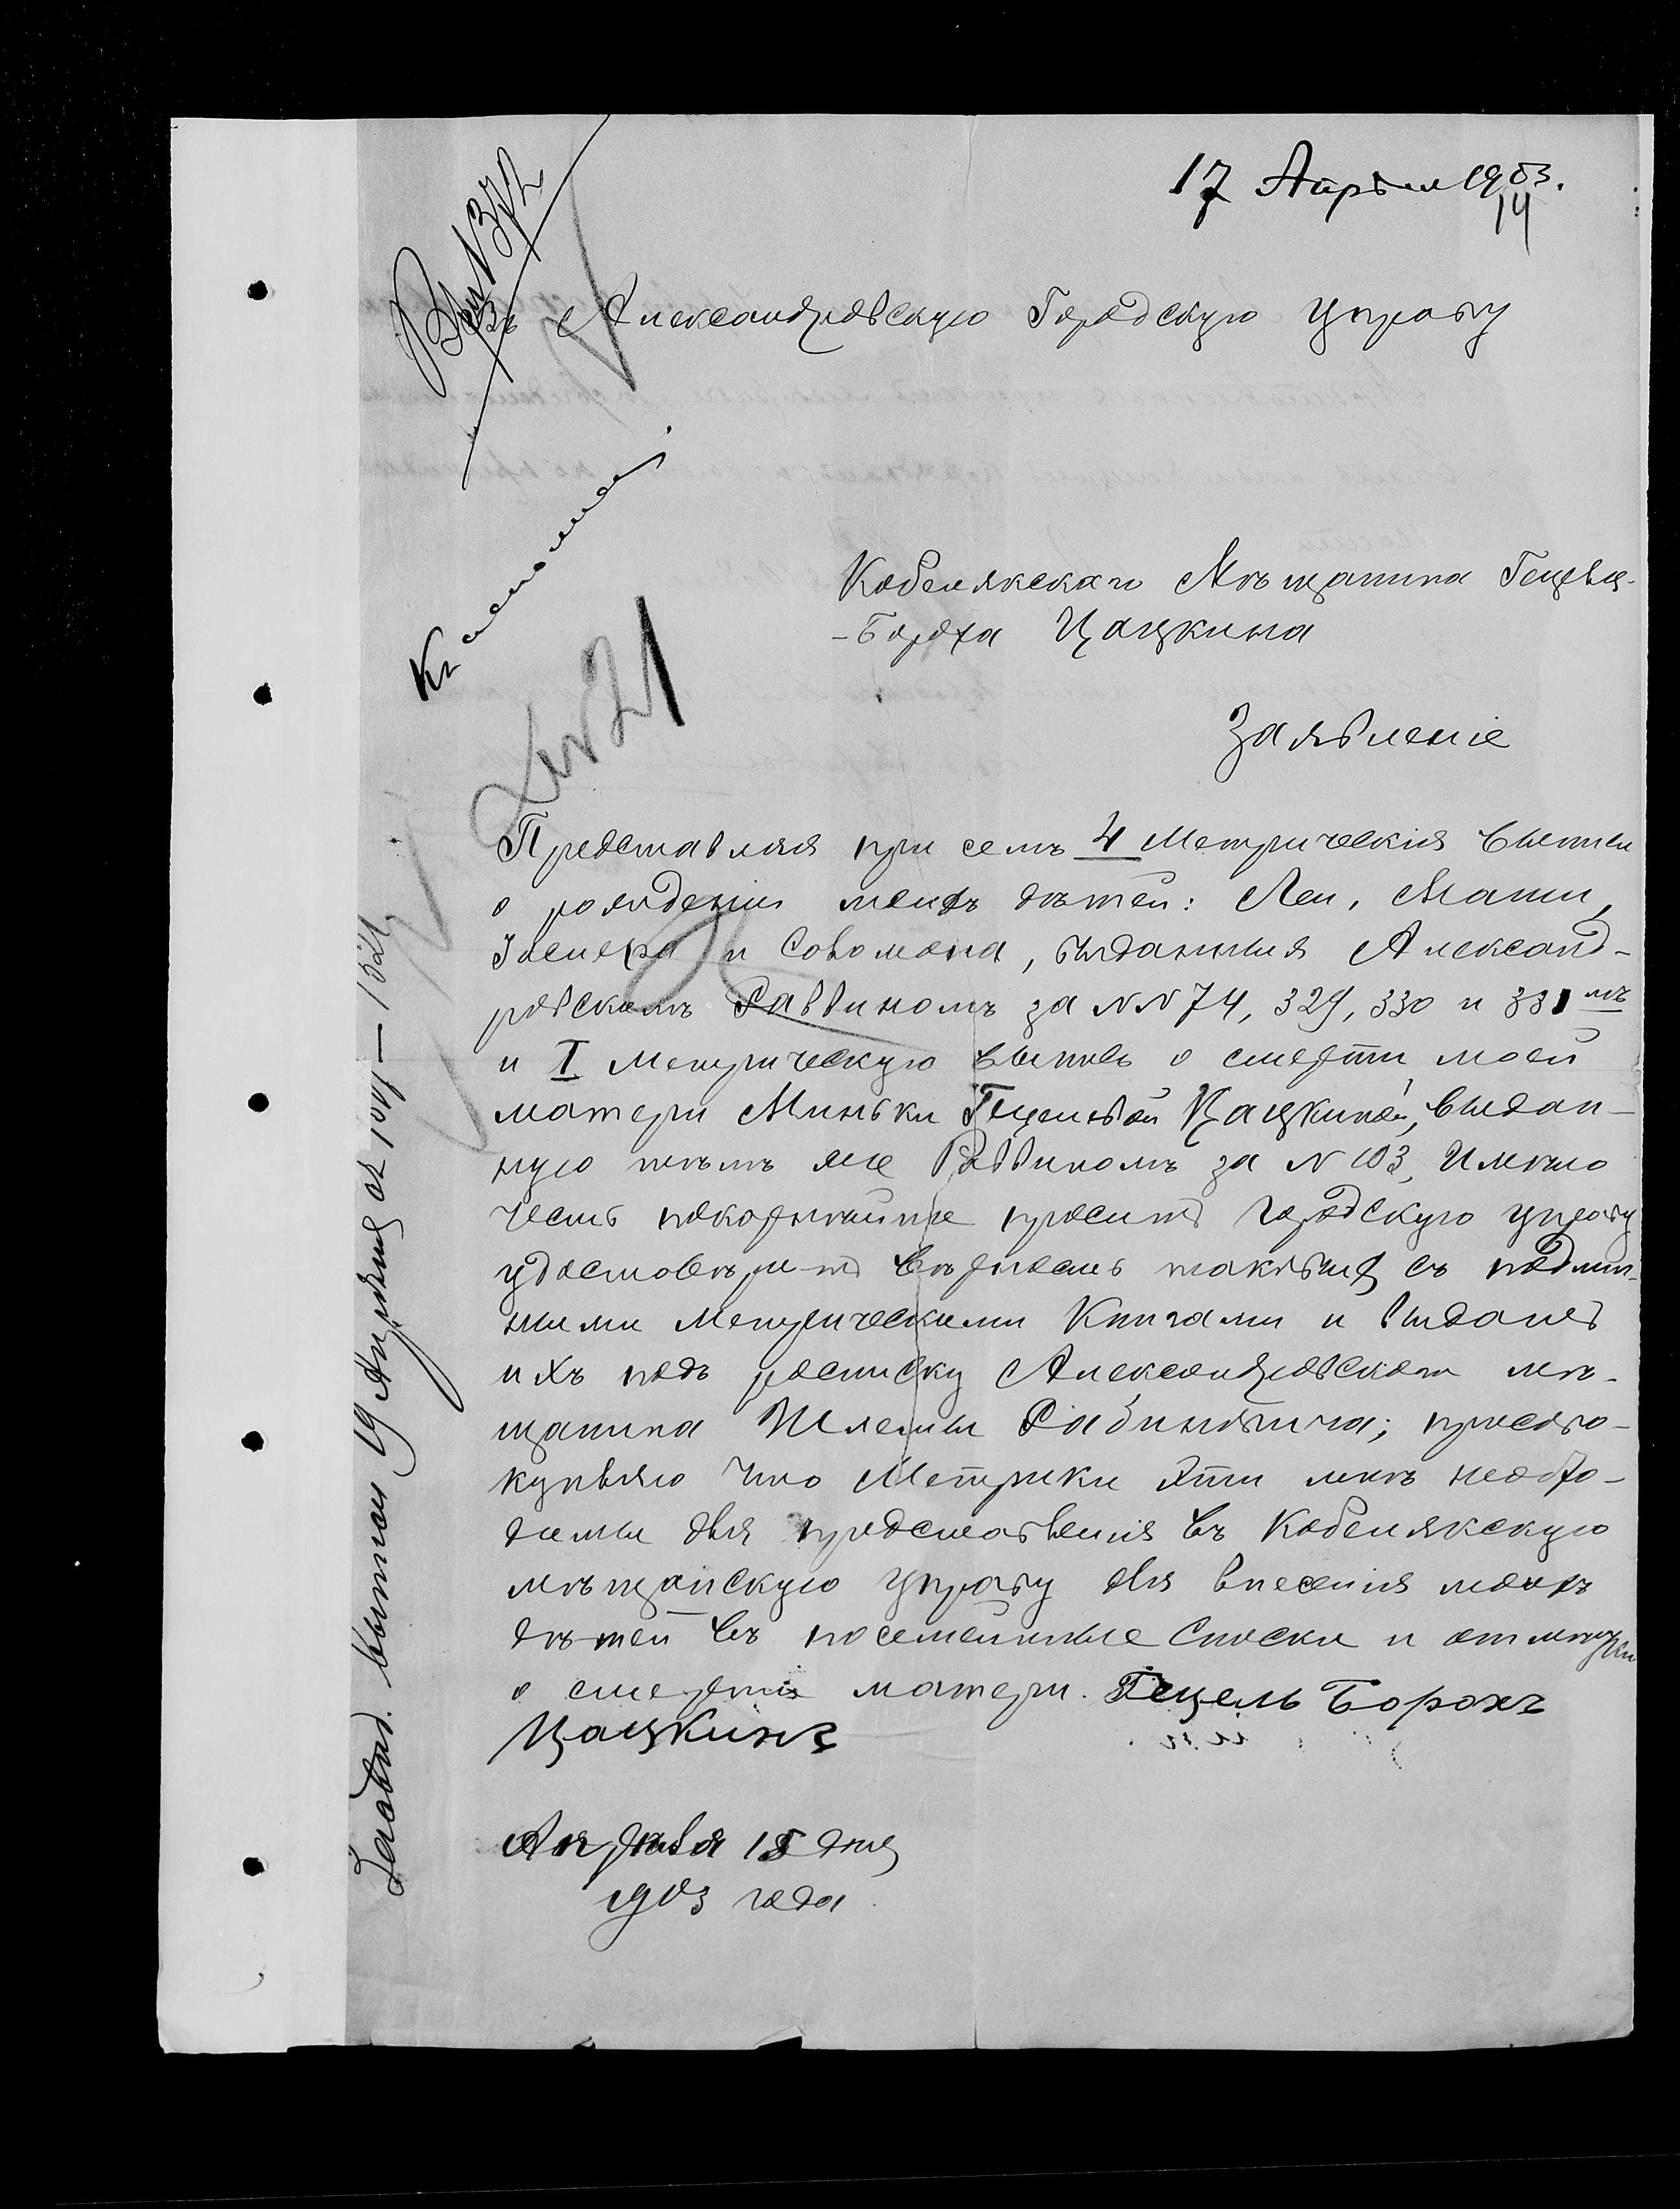 17 Апрѣля 1903.
14
Въ Александровскую Городскую Управу
Кобелякскаго Мѣщанина Гецеля-
-Бороха Цацкина
Заявленіе
Представляя при семъ 4 Метрическія выписи
о рожденіи моихъ дѣтей: Леи, Маши,
и Соломона, выданныя Александ-
ровскимъ Раввиномъ за NN 74, 329, 330 и 331 мъ
и I Метрическую выпись о смерти моей
матери Миньки Гецелевой Цацкиной, выдан-
ную тѣмъ же Раввиномъ за N 103, Имѣю
честь покорнѣйше просить Городскую Управу
удостовѣрить вѣрность таковыхъ съ подлин-
ными Метрическими Книгами и выдать
ихъ подъ росписку Александровскаго мѣ-
щанина Шлемы Рабиновича; присово-
купляю что Метрики эти мнѣ необхо-
димы для представленія въ Кобелякскую
мѣщанскую Управу для внесенія моихъ
дѣтей въ посемейные списки и отмѣтки
о смерти матери. Гецель Борохъ
Цацкинъ
Апрѣля 15 дня
1903 года
19 Апрѣля за №